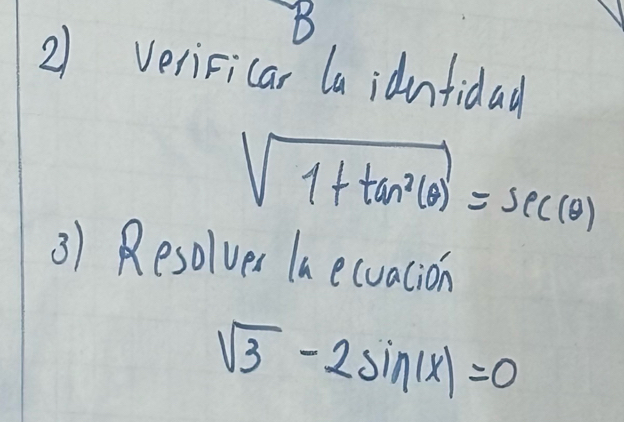 B
2) Verificar la identidad
√1 + tan²(θ) = sec(θ)
3) Resolver la ecuación
√3 - 2 sin(x) = 0